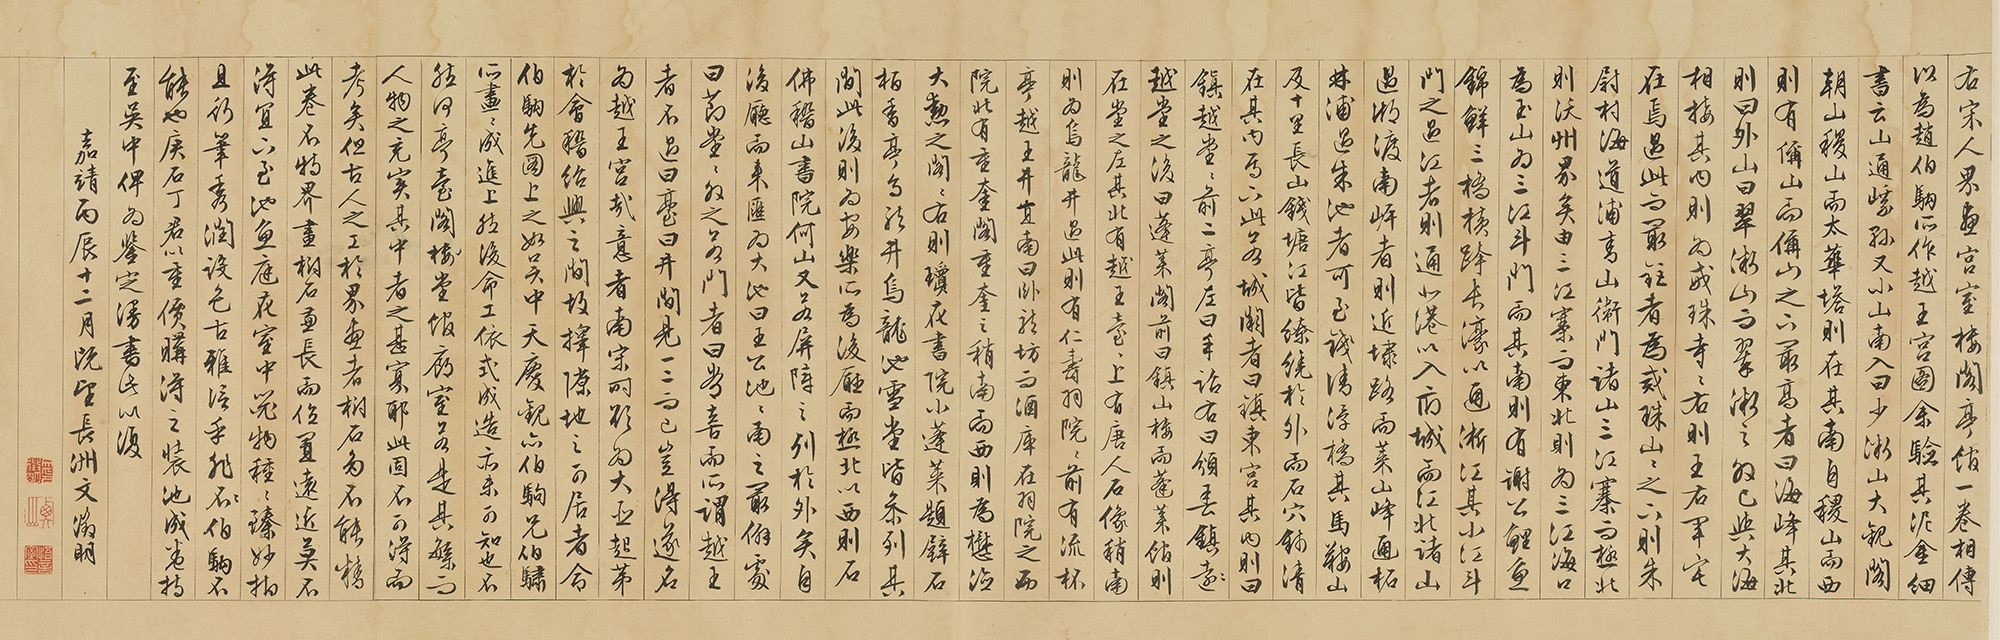 右宋人界畫宮室樓閣亭館一卷相傳
以為趙伯駒所作越王宮圖余驗其泥金細
書云山通嵊孫又小山南入曰少漵山大觀閣
朝山稷山而太華塔則在其南自稷山而西
則有偁山而偁山之下最高者曰海峰其北
則曰外山曰翠漵山而翠漵之外已與大海
相接其內則為戒珠寺寺右則王右軍宅
在焉過此而最駐者為戒珠山山之下則朱
尉村海道浦青山衙門諸山三江寨而極北
則沃州界矣由三江寨而東北則為三江海口
為玉山為三江斗門而其南則有謝公鯉魚
錦鮮三橋橫跨長濠以通浙江其小江斗
門之過江者則通北港以入府城而江北諸山
過湖渡南岸者則近埭路而萊山峰通柘
林浦過朱池者可至錢清浮橋其馬鞍山
及十里長山錢塘江皆繚繞於外而石穴錢清
在其內焉下此若城闕者曰鎮東宮其內則曰
鎮越堂堂前二亭左曰年詒右曰頒春鎮
越堂之後曰蓬萊閣前曰鎮山樓而蓬萊館則
在堂之左其北有越王臺臺上有唐人石像稍南
則為烏龍井過此則有仁壽羽院院前有流杯
亭越王井宜南曰臥龍坊而酒庫在羽院之西
院北有重奎閣重奎之稍南而西則為懋治
大勲之閣閣右則瓊花書院小蓬萊題壁石
栢香亭烏龍井烏龍池雪堂皆參列其
間此後則為安樂所為後廳而極北以西則石
佛稽山書院何山又若屏障之列於外矣自
後廳而東匯為大池曰王公池池南之最僻處
曰莭堂堂外之若門者曰觀音而所謂越王
者不過曰臺曰井間見一二而已豈得遂名
為越王宮哉意者南宋時欲為大业起第
於會稽紹興之間故擇隙地之可居者命
伯駒先圖上之如吳中天慶觀亦伯駒兄伯驌
所畫畫成進上然後命工依式成造亦未可知也不
然何亭臺閣樓堂館廊室若是其縣而
人物之充實其中者之甚寡耶此固不可得而
考矣但古人之工於界畫者樹石為不能精
此卷不特界畫樹石並長而位置遠近莫不
得宜下至池魚庭花室中玩物種種臻妙拍
且行筆秀潤設色古雅信乎非伯駒不
能也庚石丁君以重價購得之裝池成卷持
至吳中俾為鑒定漫書此以復
嘉靖丙辰十二月既望長洲文徵明